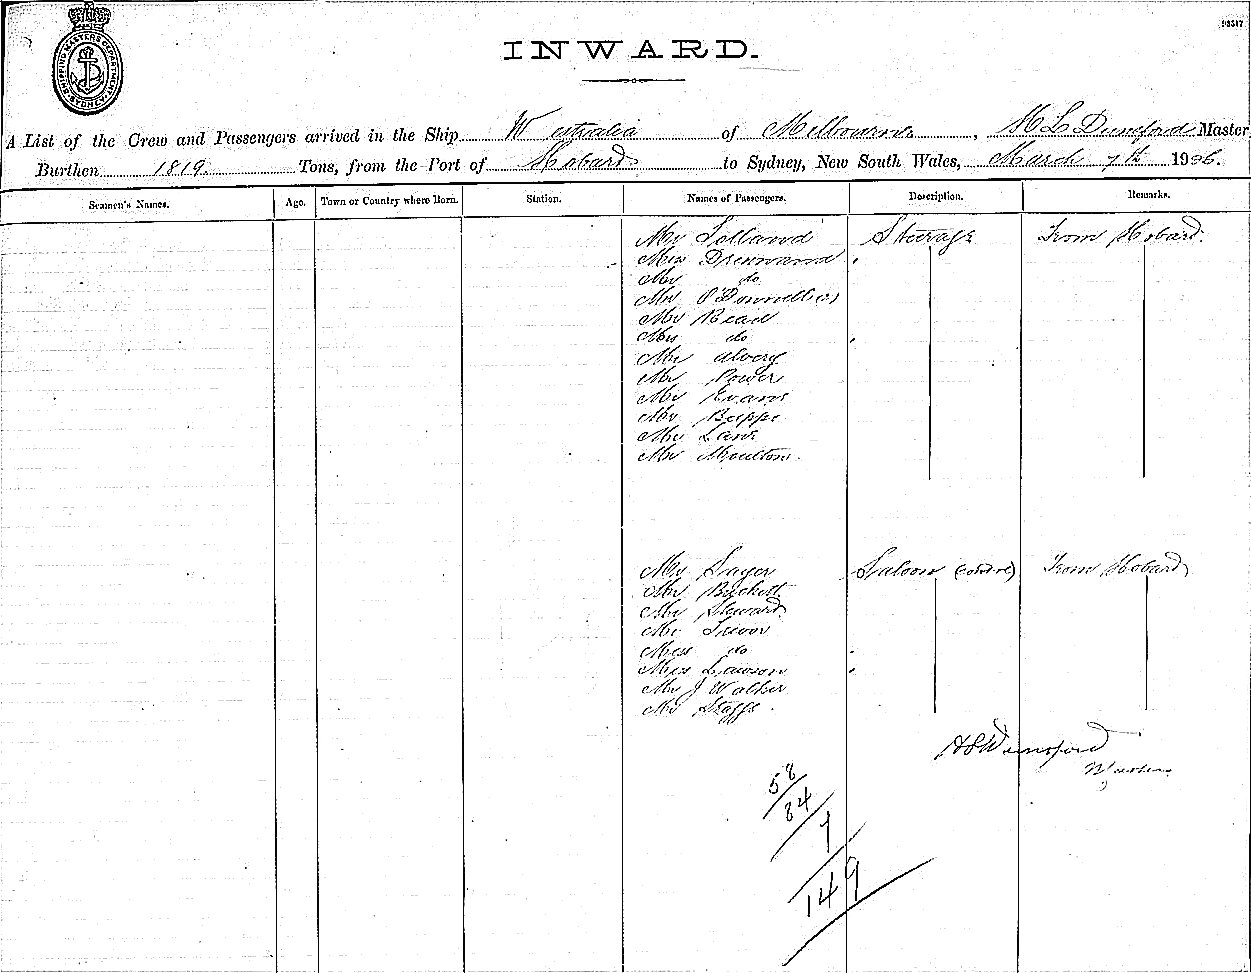 SHIPPING MASTER'S DEPARTMENT SYDNEY
INWARD.
A List of the Crew and Passengers arrived in the Ship Westralia of Melbourne, Master
Burthen 1819 Tons, from the Port of Hobard to Sydney, New South Wales, March 7th 1906.
Seamen's Names. Age. Town or Country where Born. Station. Names of Passengers. Description. Remarks.
Mr Steerage From Hobard.
Miss
Mr do
Mr O'Donnell
Mr Read
Mrs do
Mr
Mr Power
Mr Evans
Mr
Mr Lane
Mr Moulton.
Mr Sayer Saloon From Hobard
Mr
Mr Steward
Mr Trivor
Miss do
Miss Lawson
Mr J Walker
Mr Staggs
Master
58
84
7
149